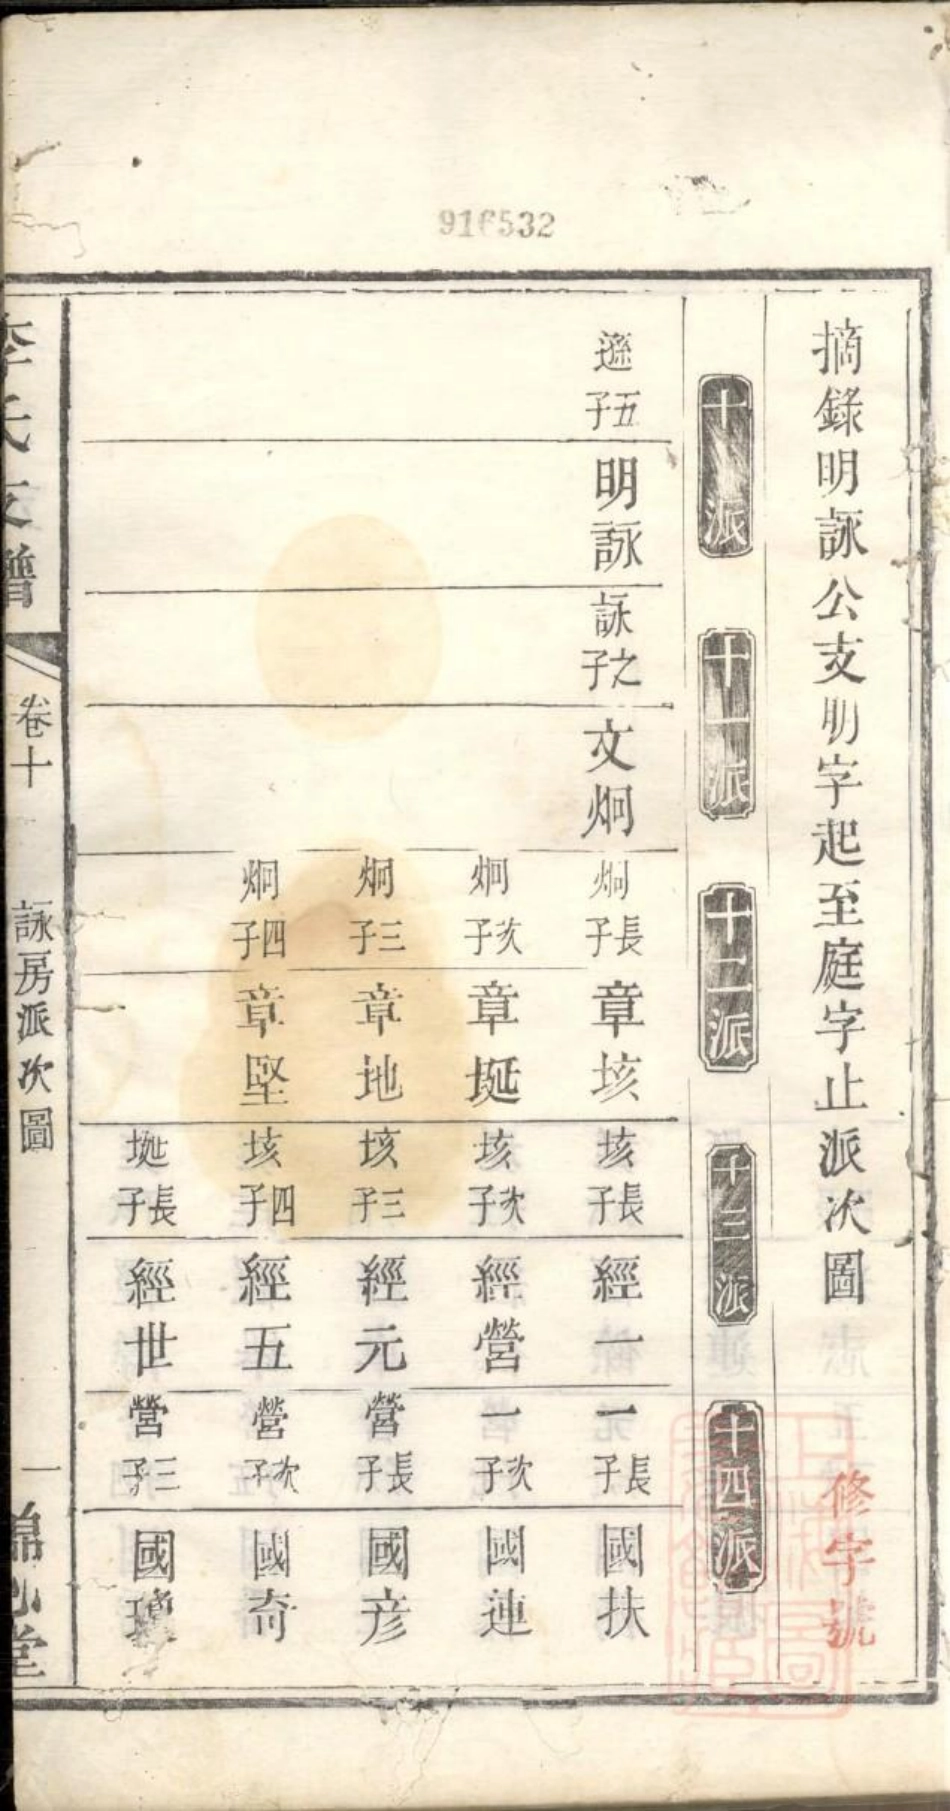 916532
摘錄明詠公支明字起至庭字止派次圖
修字號
十派
十一派
十二派
十三派
十四派
遜五子
明詠
詠之子
文炯
炯長子
章垓
垓長子
經一
一長子
國扶
炯次子
章埏
垓次子
經營
一次子
國連
炯三子
章地
垓三子
經元
營長子
國彥
炯四子
章堅
垓四子
經五
營次子
國奇
埏長子
經世
營三子
國
李氏支譜
卷十
詠房派次圖
一